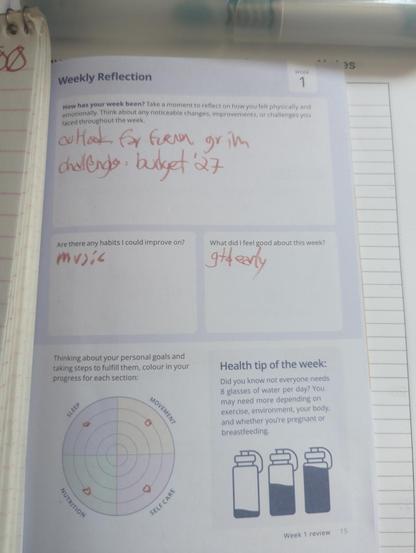 Weekly Reflection
WEEK
1
How has your week been? Take a moment to reflect on how you felt physically and
emotionally. Think about any noticeable changes, improvements, or challenges you
faced throughout the week.
outlook for
grim
challenge: budget '27
Are there any habits I could improve on?
music
What did I feel good about this week?
early
Thinking about your personal goals and
taking steps to fulfill them, colour in your
progress for each section:
SLEEP
MOVEMENT
NUTRITION
SELF CARE
Health tip of the week:
Did you know not everyone needs
8 glasses of water per day? You
may need more depending on
exercise, environment, your body,
and whether you're pregnant or
breastfeeding.
Week 1 review 15